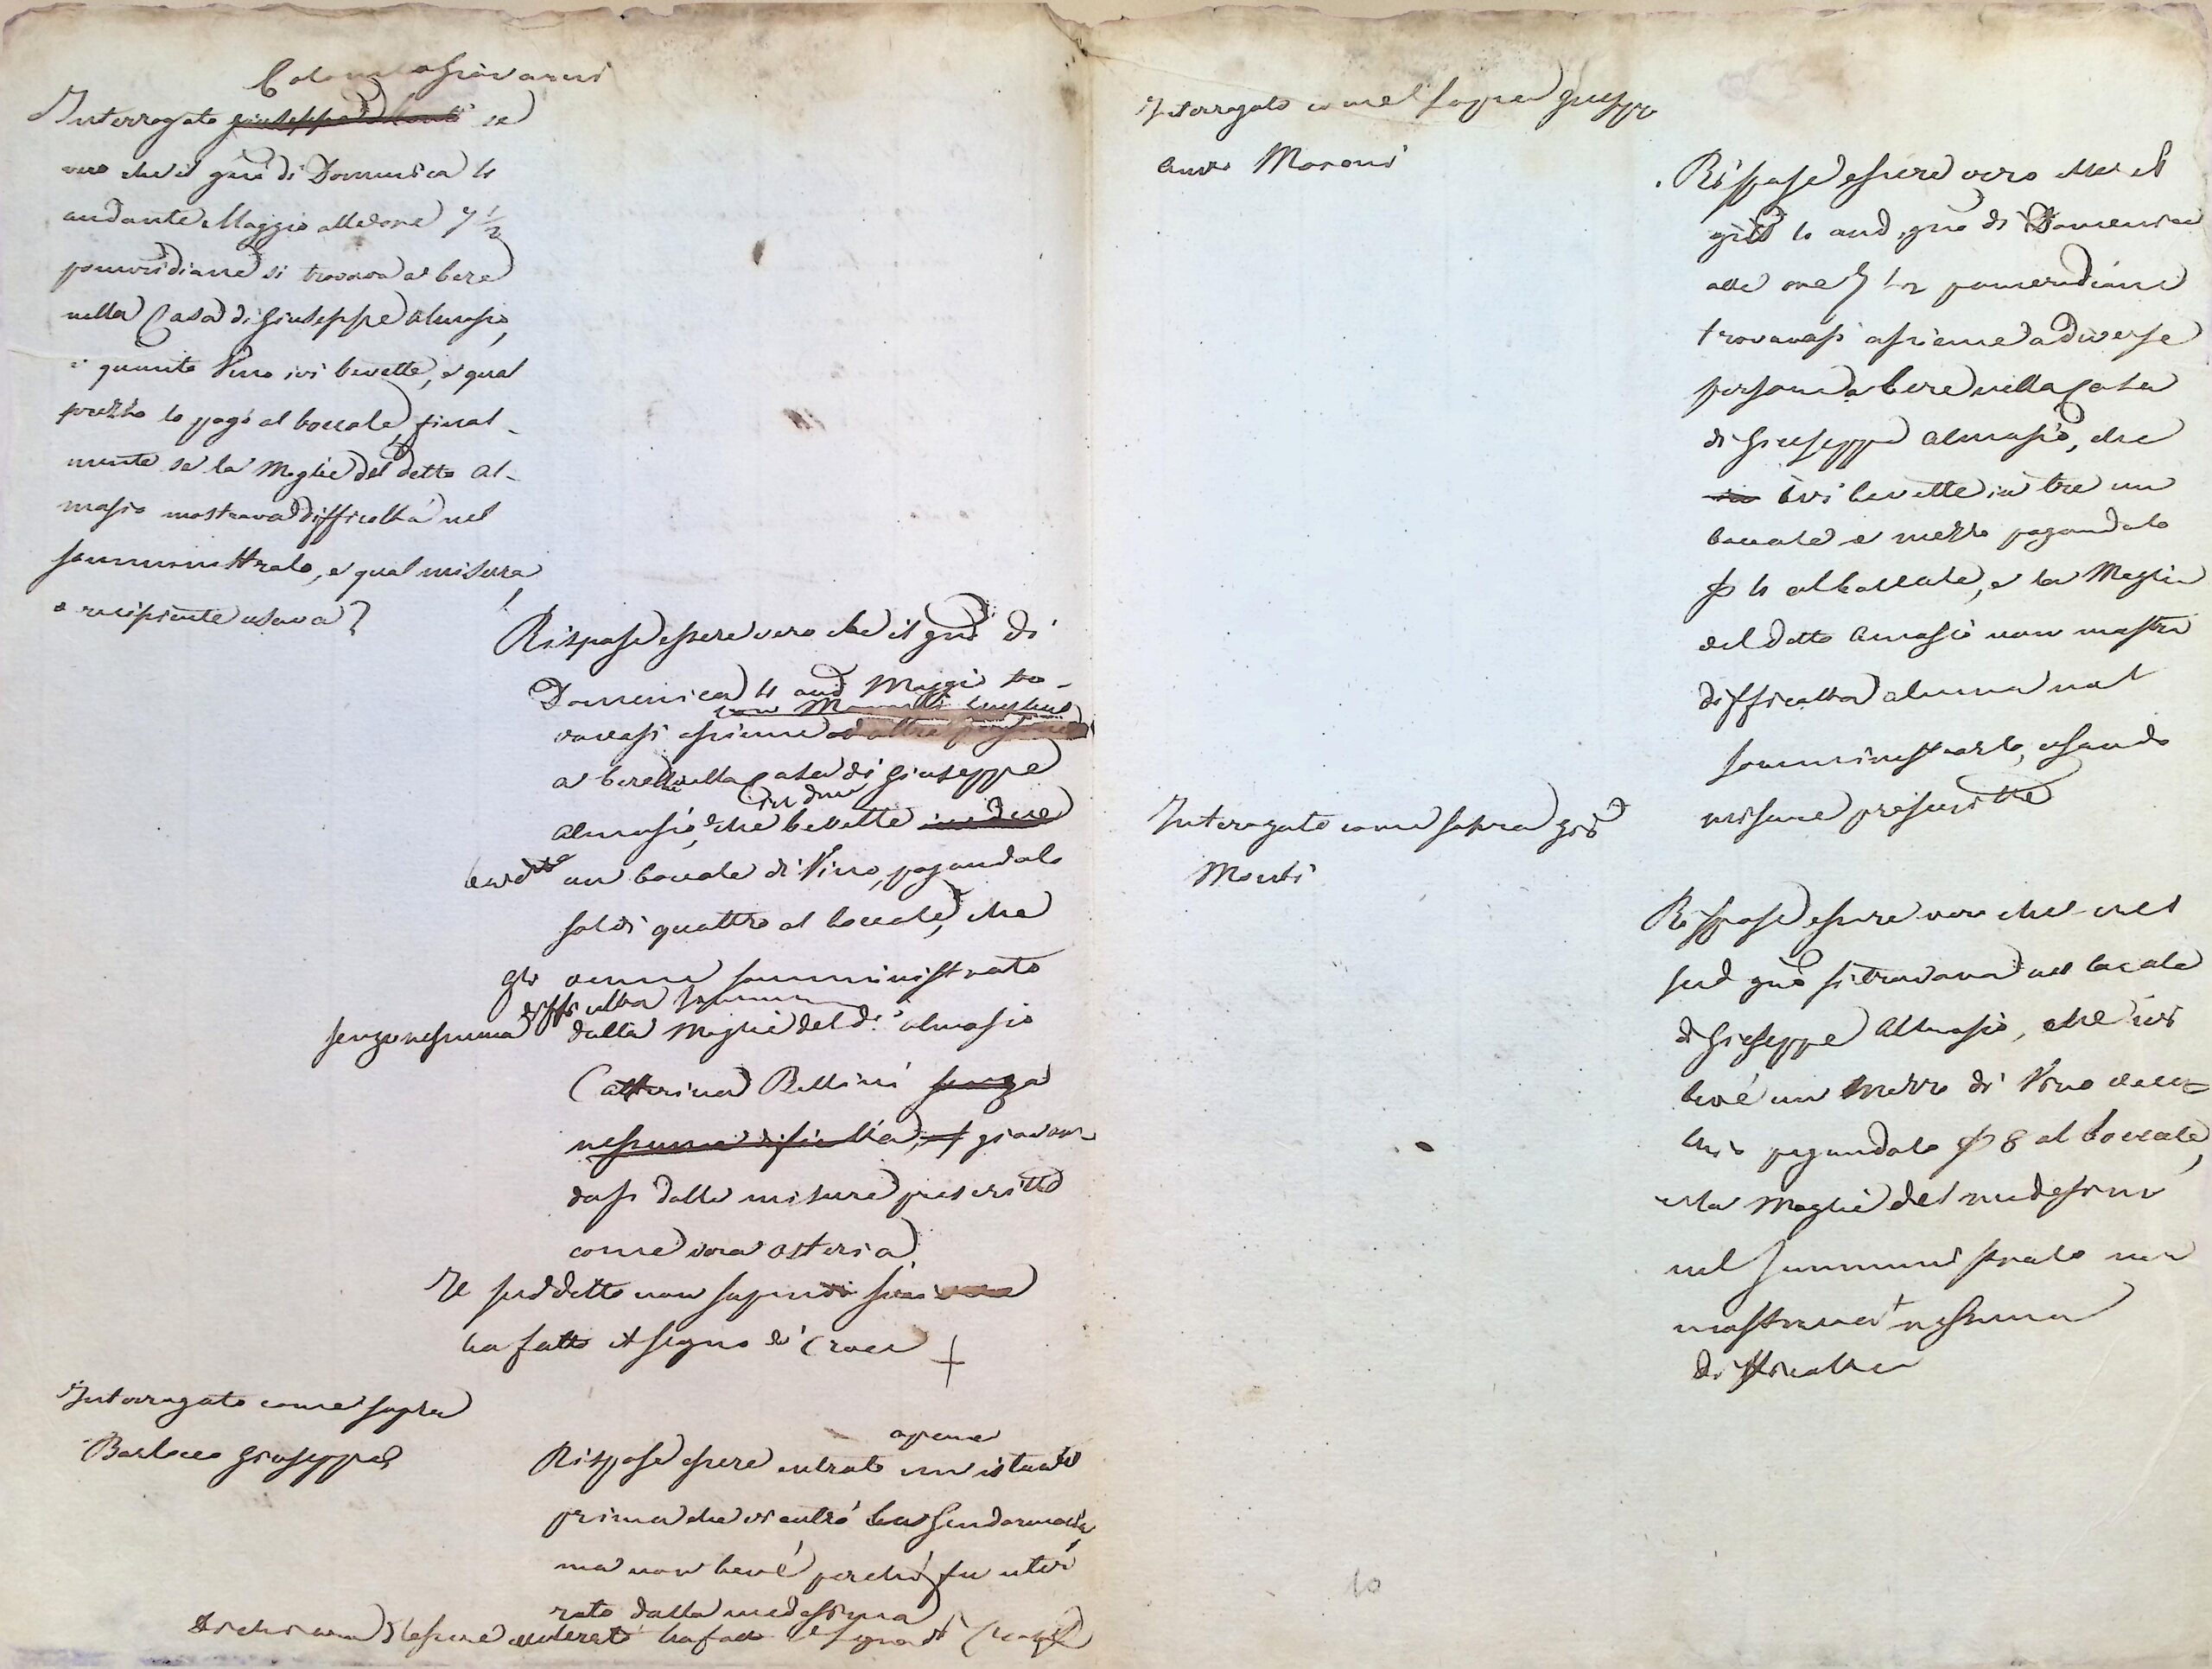 Colombo Giovanni
Interrogato Giuseppe Monti se
vero che il gno di Domenica 4
andante Maggio alle ore 7 1/2
pomeridiane si trovava a bere
nella Casa di Giuseppe Almasio,
e quanto Vino ivi bevette, e qual
prezzo lo pagò al boccale, final-
mente se la Moglie del detto Al-
masio mostrava difficoltà nel
somministrarlo, e qual misura
o recipiente usava?
Rispose essere vero che il gno di
Domenica 4 and Maggio tro-
con
vavasi assieme ad altre persone
a bere nella Casa di Giuseppe
in due
Almasio, che bevette in due
un boccale di Vino, pagandolo
soldi quattro al boccale, che
gli venne somministrato
difficoltà
senza nessuna dalla Moglie del do Almasio
Catterina Bellini senza
nessuna dificoltà, giovan-
dosi delle misure prescritte
come vera osteria.
Il suddetto non sapendo
ha fatto il segno di Croce +
Interrogato come sopra
Barlocco Giuseppe
Rispose essere entrato un istante
appena
prima che vi entrò la Gendarmeria,
ma non bevè perchè fu
dalla medesima
Dichiarando d'essere illeterato ha fatto il segno di Croce
Interrogato come sopra Giuseppe
Anto Moroni
Rispose essere vero che il
gno 4 and gno di Domenica
alle ore 7 1/2 pomeridiane
trovavasi assieme a diverse
persone a bere nella Casa
di Giuseppe Almasio, che
ivi bevette in tre un
boccale e mezzo pagandolo
4 al boccale, e la Moglie
del detto Amasio non mostra
difficoltà alcuna nel
somministrarlo, usando
misure prescritte
Interrogato come sopra Gio
Monti
Rispose essere vero che nel
sud gno si trovava nel locale
di Giuseppe Almasio, che ivi
bevè un mezzo di Vino
pagandolo 8 al boccale,
e la Moglie del medesimo
nel somministrarlo non
mostrava nessuna
difficoltà
10